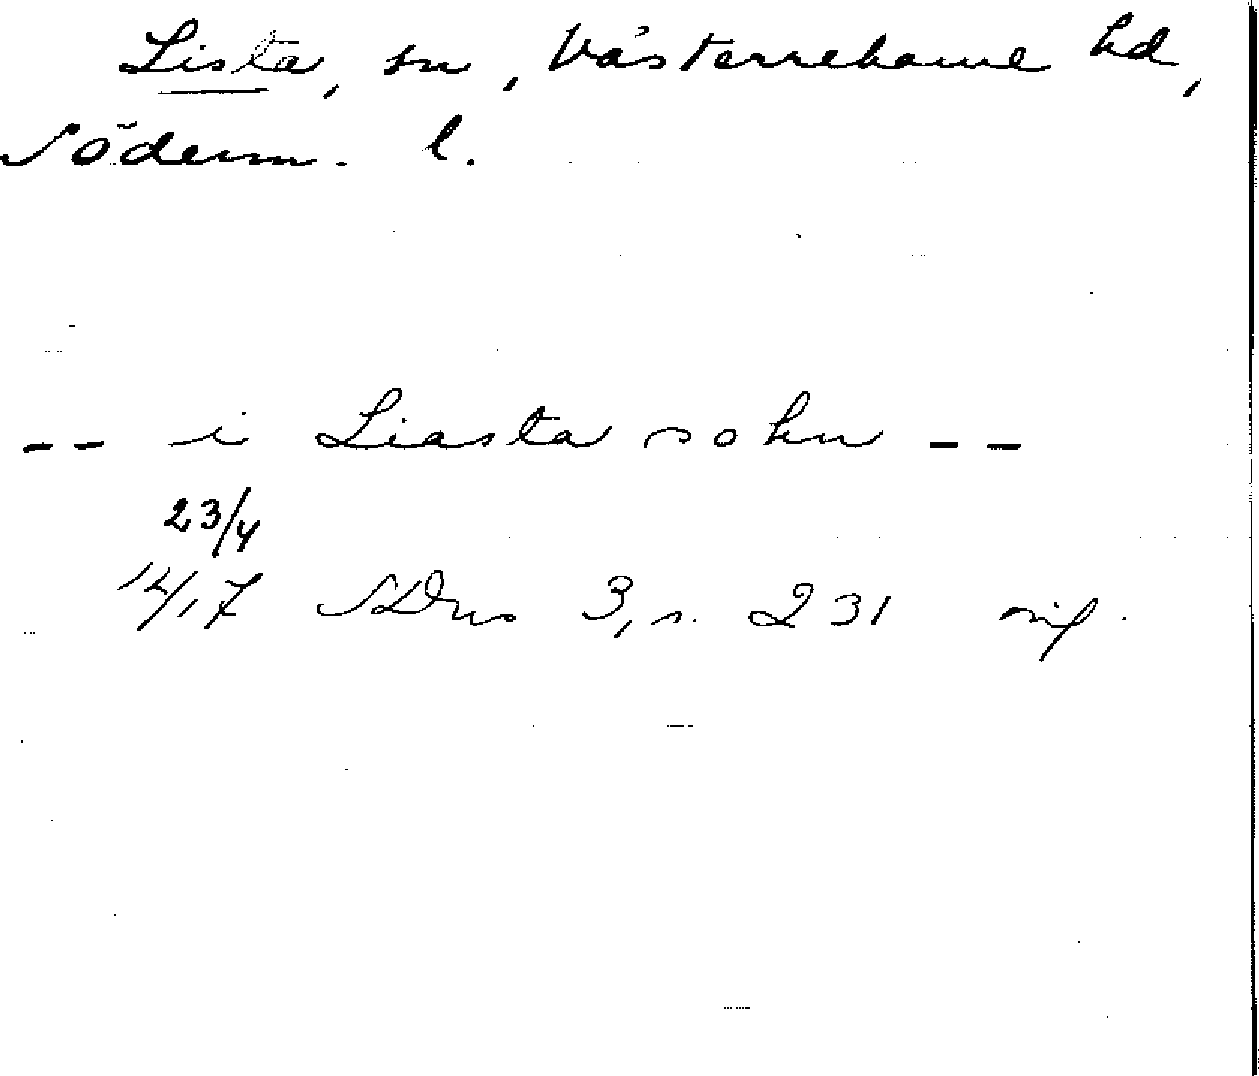 Lista, sn, Västerrekarne hd,
Söderm. l.
-- i Liasta sokn --
23/4
14/17 SDns 3, s. 231